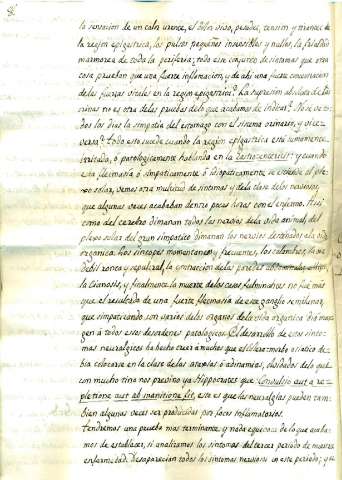 8.
la sensacion de un calor urente, el dolor vivo, pesadez, tension y
la region epigastrica, los pulsos pequeños insensibles y nullos, la frialdad
marmorea de toda la periferia; todo este conjunto de sintomas que otra
cosa prueban que una fuerte inflamacion, y de ahi una fuerte concentracion
de las fuerzas vitales en la region epigastrica? La supresion absoluta de las
orinas no es otra de las pruebas de lo que acabamos de indicar? No se ve to-
dos los dias la simpatia del estomago con el sistema orinario, y vice
versa? Todo esto sucede cuando la region epigastrica está sumamente
irritada, ó patologicamente hablando en la Gastroenteritis: y cuando
esta flecmasia ó simpaticamente ó idiopaticamente se estiende al ple-
xo solar, vemos otra multitud de sintomas y de la clase de los nerviosos,
que algunas veces acababan dentro pocas horas con el enfermo. Asi
como del cerebro dimanan todos los nervios de la vida animal, del
plexo solar del gran simpatico dimanan los nervios destinados a la vida
organica. Los sincopes momentaneos y frecuentes, los calambres, la voz
debil ronca y sepulcral, la contraccion de las paredes
la Cianosis, y finalmente la muerte de los casos fulminantes no fué mas
que el resultado de una fuerte flecmasia de este ganglio semilunar,
que simpaticando con varios de los organos de la vida organica dió mar-
gen á todos estos desordenes patologicos. El desarrollo de estos sinto-
mas neuralgicos ha hecho creer á muchos que el Colera-morbo asiatico de-
bia colocarse en la clase de las ataxias ó adinamias, olvidados de lo que
con mucho tino nos previno ya Hippocrates que Convulsio aut a re-
pletione aut ab inanitione fit, esto es que las neuralgias pueden tam-
bien algunas veces ser producidas por focos inflamatorios.
Tendremos una prueba mas terminante, y nada equivoca de lo que acaba-
mos de establecer, si analizamos los sintomas del tercer periodo de nuestra
enfermedad. Desaparecian todos los sintomas nerviosos en este periodo; y